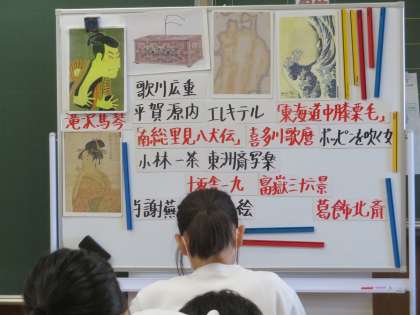 歌川広重
平賀源内 エレキテル 「東海道中膝栗毛」
滝沢馬琴
「南総里見八犬伝」 喜多川歌麿 ポッピンを吹く女
小林一茶 東洲斎写楽
十返舎一九 富嶽三十六景
与謝蕪 絵 葛飾北斎